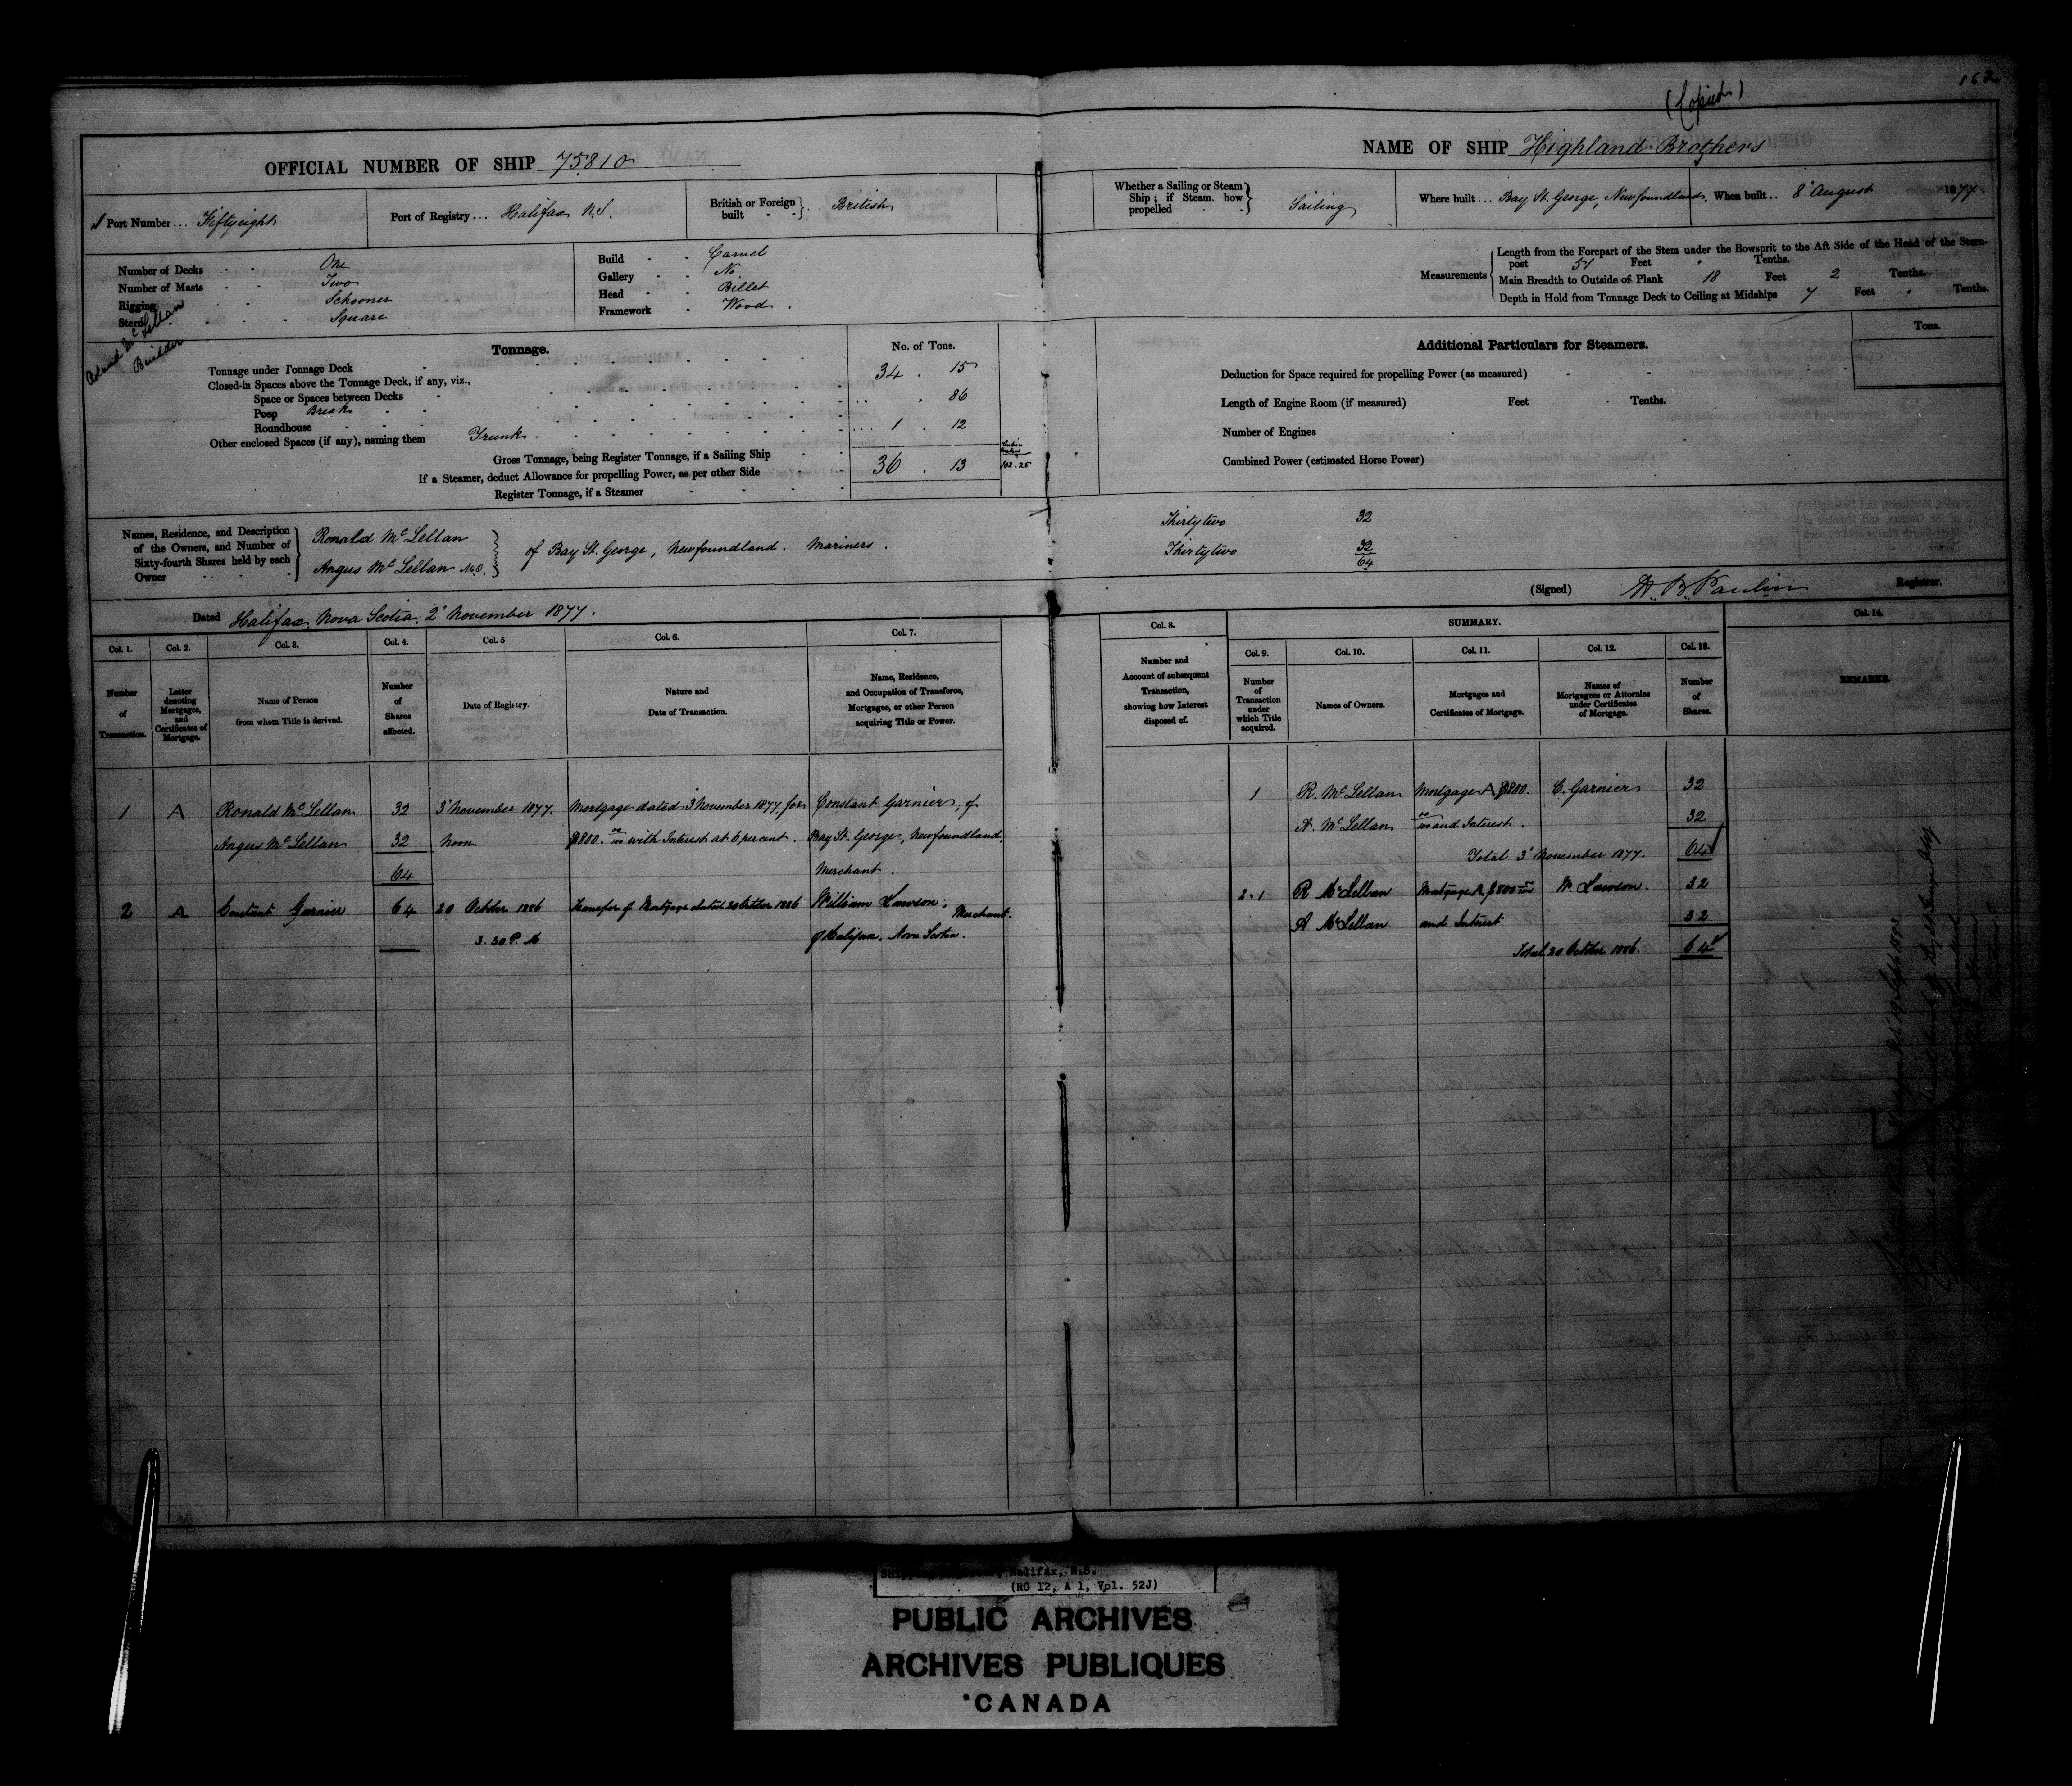 162
(Copied)
OFFICIAL NUMBER OF SHIP 75810
NAME OF SHIP Highland Brothers
Port Number... Fiftyeight
Port of Registry... Halifax N.S.
British or Foreign built - - } .. British
Whether a Sailing or Steam Ship; if Steam, how propelled - - } Sailing
Where built... Bay St. George, Newfoundland.
When built.. 8' August 1877
Number of Decks - - One
Number of Masts - - Two
Rigging - - Schooner
Stern - - - Square
Build - - Carvel
Gallery - - No
Head - - Billet
Framework - Wood.
Measurements
Length from the Forepart of the Stem under the Bowsprit to the Aft Side of the Head of the Stern-
post 51 Feet " Tenths.
Main Breadth to Outside of Plank 18 Feet 2 Tenths.
Depth in Hold from Tonnage Deck to Ceiling at Midships 7 Feet " Tenths.
McLellan
Builder
Tonnage.
No. of Tons.
Tonnage under Tonnage Deck 34 . 15
Closed-in Spaces above the Tonnage Deck, if any, viz.,
Space or Spaces between Decks
Poop Break . 86
Roundhouse
Other enclosed Spaces (if any), naming them Trunk 1 . 12
Gross Tonnage, being Register Tonnage, if a Sailing Ship 36 . 13
102.25
If a Steamer, deduct Allowance for propelling Power, as per other Side
Register Tonnage, if a Steamer
Additional Particulars for Steamers.
Tons.
Deduction for Space required for propelling Power (as measured)
Length of Engine Room (if measured) Feet Tenths.
Number of Engines
Combined Power (estimated Horse Power)
Names, Residence, and Description of the Owners, and Number of Sixty-fourth Shares held by each Owner
Ronald McLellan
Angus McLellan
of Bay St. George, Newfoundland. Mariners.
Thirtytwo 32
Thirtytwo 32
64
(Signed) H. B. Paulin Registrar.
Dated Halifax, Nova Scotia, 2' November 1877.
Col. 1. Col. 2. Col. 3. Col. 4. Col. 5 Col. 6. Col. 7. Col. 8. SUMMARY. Col. 14.
Col. 9. Col. 10. Col. 11. Col. 12. Col. 13.
Number of Transaction.
Letter denoting Mortgages, and Certificates of Mortgage.
Name of Person from whom Title is derived.
Number of Shares affected.
Date of Registry.
Nature and Date of Transaction.
Name, Residence, and Occupation of Transferee, Mortgagee, or other Person acquiring Title or Power.
Number and Account of subsequent Transaction, showing how Interest disposed of.
Number of Transaction under which Title acquired.
Names of Owners.
Mortgages and Certificates of Mortgage.
Names of Mortgagees or Attornies under Certificates of Mortgage.
Number of Shares.
REMARKS.
1 A Ronald McLellan 32 3' November 1877. Mortgage dated 3 November 1877, for Constant Garnier, of
Angus McLellan 32 Noon $800. 00/100 with Interest at 6 per cent. Bay St. George, Newfoundland,
64 Merchant.
2 A Constant Garnier 64 20 October 1886 Transfer of Mortgage dated 20 October 1886 William Lawson, Merchant.
3.30 P.M of Halifax, Nova Scotia.
1 R. McLellan Mortgage A $800. C. Garnier 32
A. McLellan 00/100 and Interest. 32
Total 3' November 1877. 64
2.1 R McLellan Mortgage A $800 00/100 W. Lawson. 32
A McLellan and Interest 32
Total 20 October 1886. 64
Halifax, N.S.
(RG 12, A 1, Vol. 52J)
PUBLIC ARCHIVES
ARCHIVES PUBLIQUES
CANADA